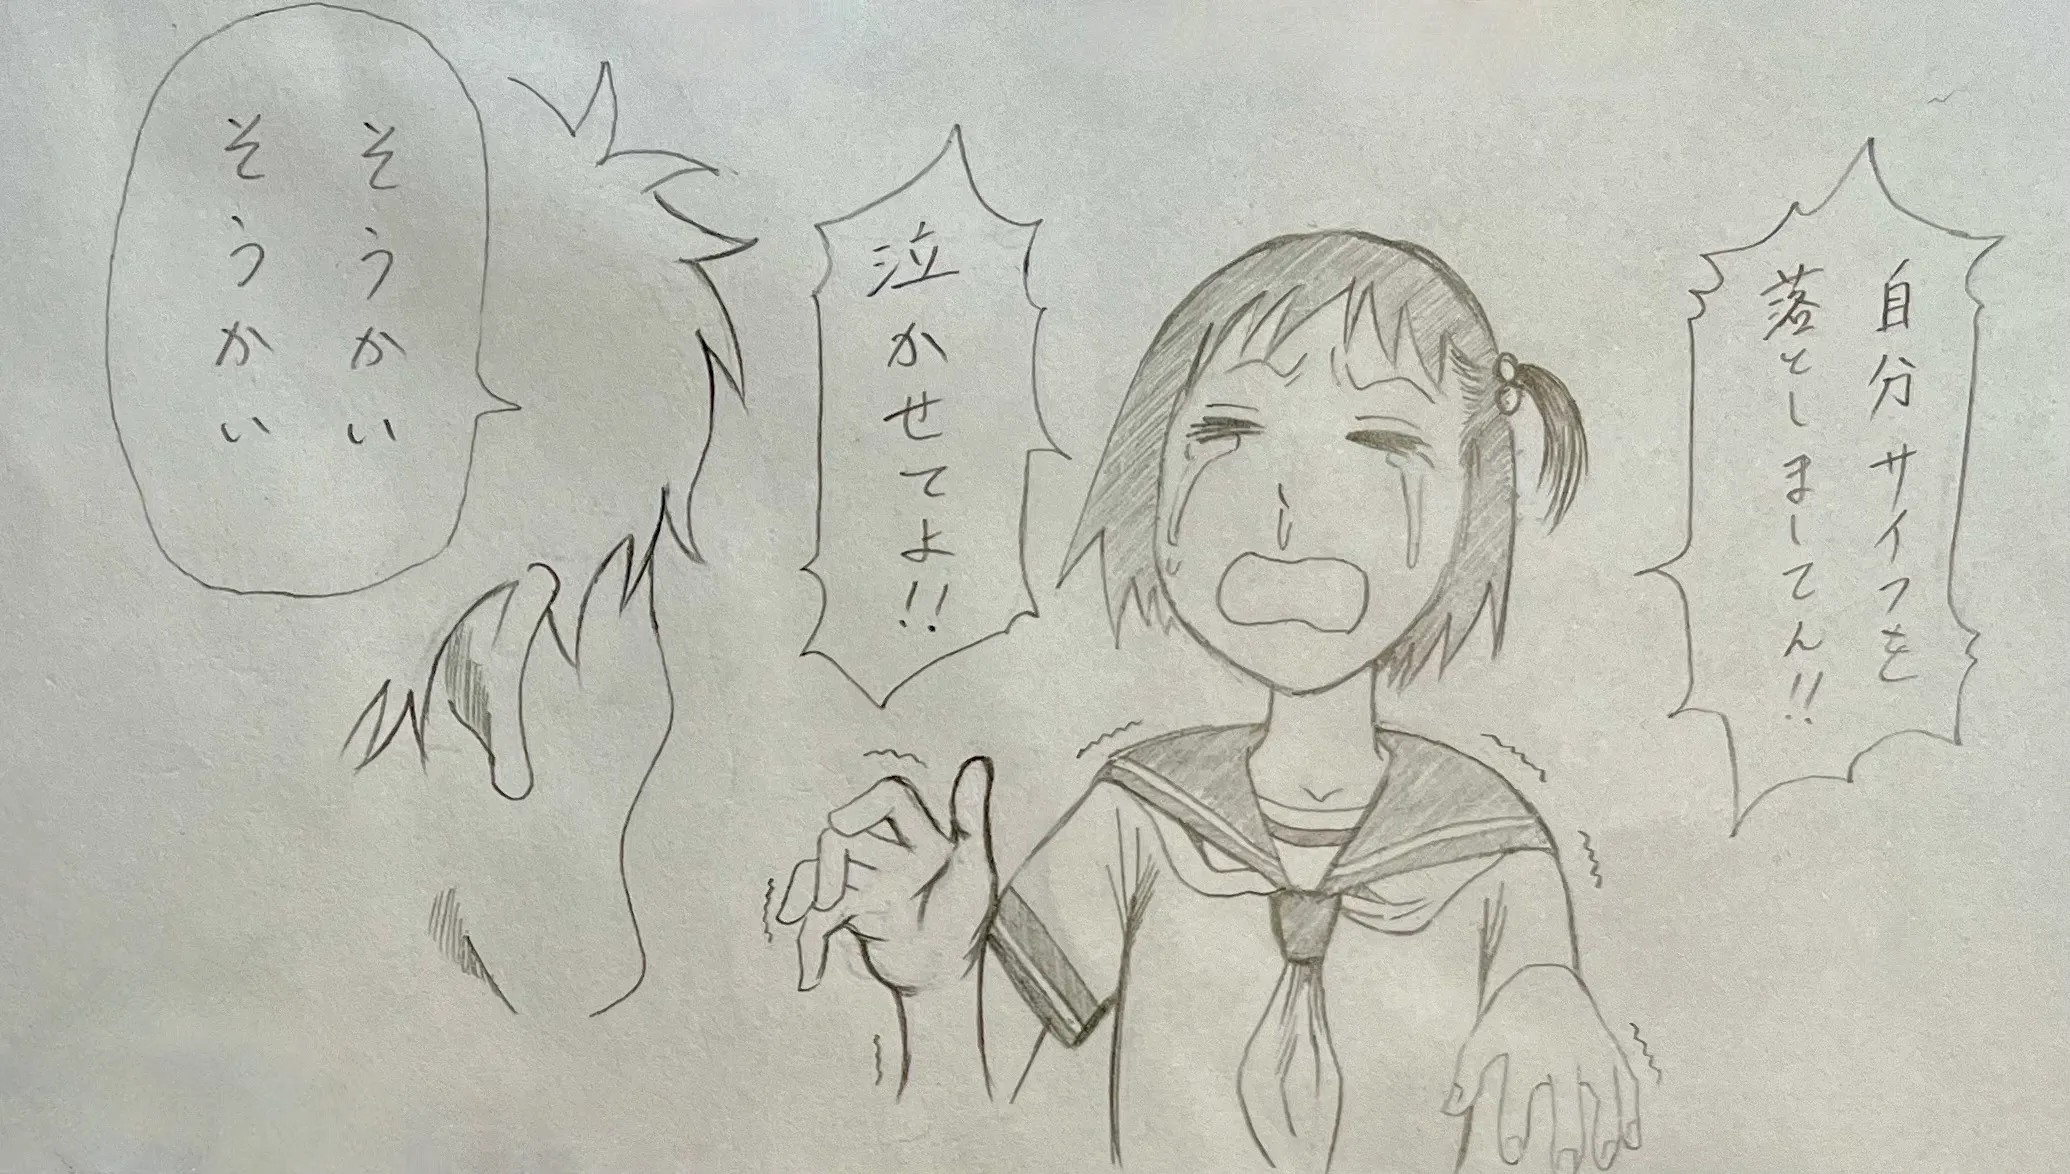 自分サイフを
落としましてん!!
泣かせてよ!!
そうかい
そうかい